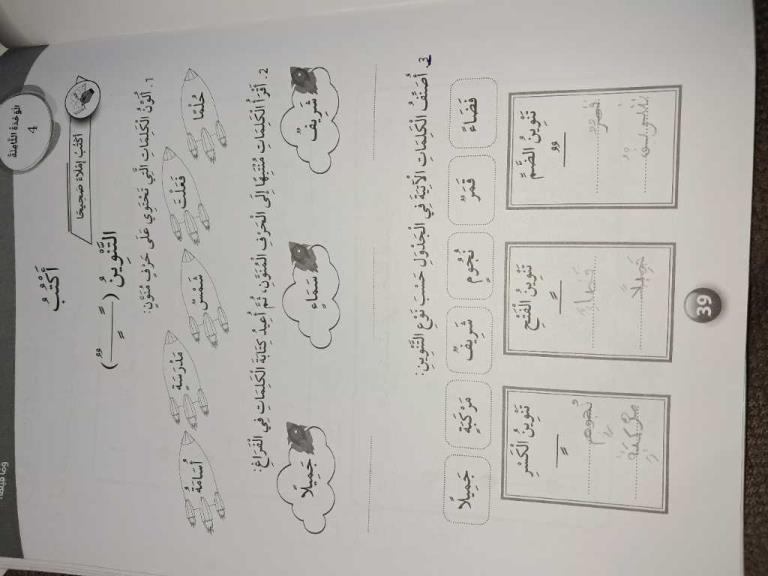 الْوَحْدَةُ الثَّامِنَةُ
4
أَكْتُبُ
أَكْتُبُ إِمْلَاءً صَحِيحًا
التَّنْوِينُ ( ــًــٍــٌ )
1. أُلَوِّنُ الْكَلِمَاتِ الَّتِي تَحْتَوِي عَلَى حَرْفٍ مُنَوَّنٍ:
حُلُمًا فَعَلَتْ شَمْسٌ مَدْرَسَةٍ أُسَامَةُ
2. أَقْرَأُ الْكَلِمَاتِ مُنْتَبِهًا إِلَى الْحَرْفِ الْمُنَوَّنِ، ثُمَّ أُعِيدُ كِتَابَةَ الْكَلِمَاتِ فِي الْفَرَاغِ:
شَرِيفٌ سَمَاءٍ جَمِيلًا
3. أُصَنِّفُ الْكَلِمَاتِ الْآتِيَةَ فِي الْجَدْوَلِ حَسَبَ نَوْعِ التَّنْوِينِ:
فَضَاءً قَمَرٌ نُجُومٍ شَرِيفٌ مَرْكَبَةٍ جَمِيلًا
تَنْوِينُ الضَّمِّ تَنْوِينُ الْفَتْحِ تَنْوِينُ الْكَسْرِ
ــٌ ــً ــٍ
قمرٌ فضاءً نُجومٍ
جَمِيلًا مركبةٍ
39